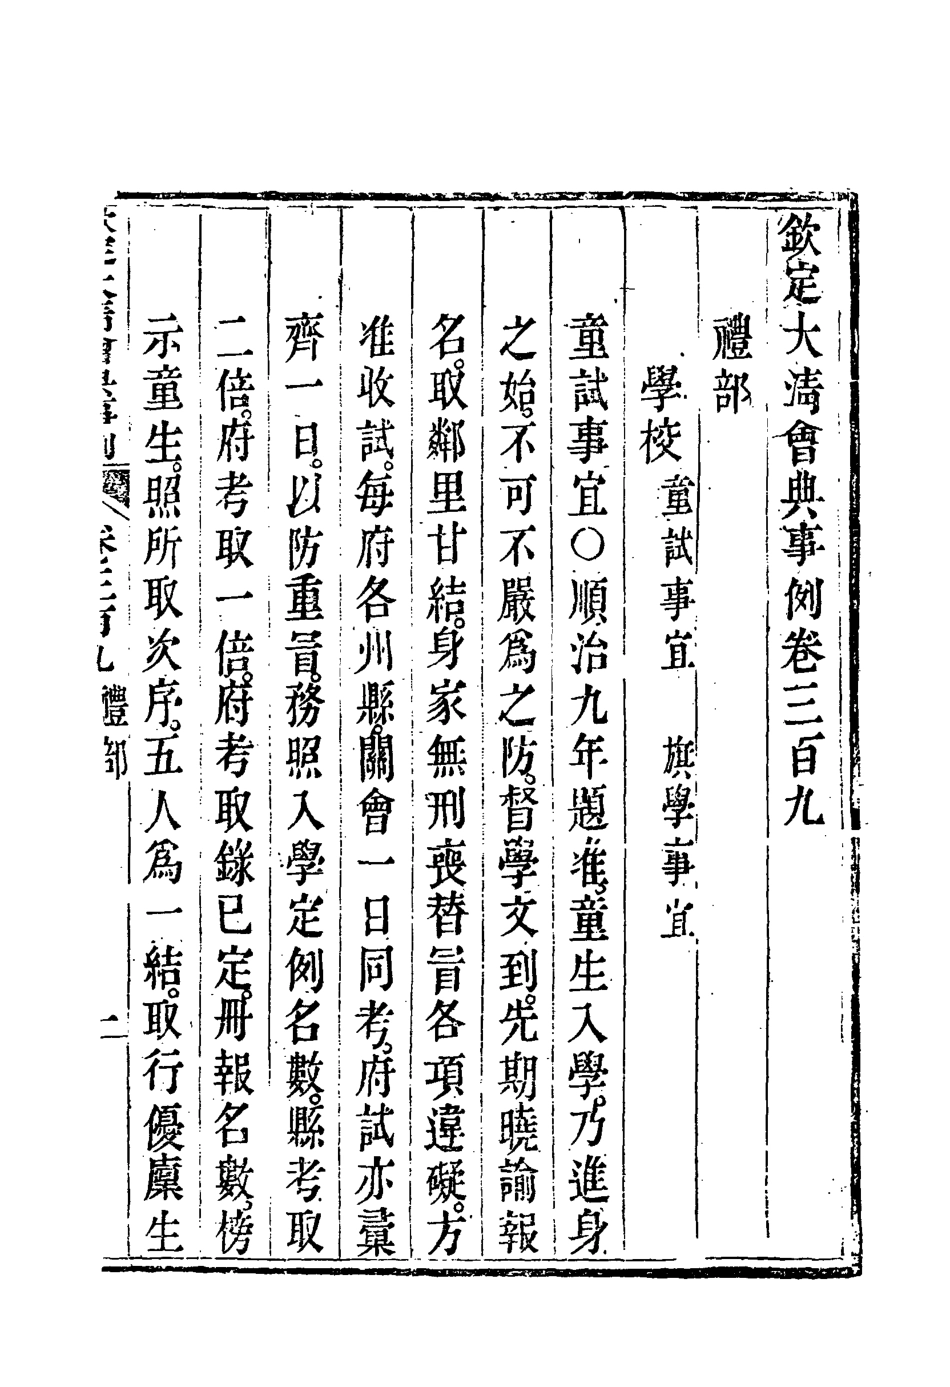 欽定大淸會典事例卷三百九
禮部
學校 童試事宜 旗學事宜
童試事宜○順治九年題准。童生入學。乃進身
之始。不可不嚴爲之防。督學文到。先期曉諭報
名。取鄰里甘結。身家無刑喪替冒各項違礙。方
准收試。每府各州縣。關會一日同考。府試亦彙
齊一日。以防重冒。務照入學定例名數。縣考取
二倍。府考取一倍。府考取錄已定。冊報名數。榜
示童生。照所取次序。五人爲一結。取行優廩生
欽定大淸會典事例 卷三百九 禮部 一